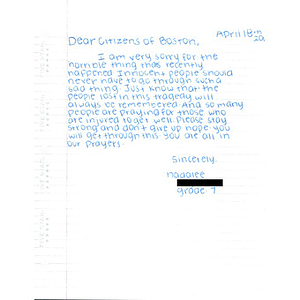 April 18th
20
Dear Citizens of Boston,
I am very sorry for the
horrible thing that recently
happened. Innocent people should
never have to go through such a
sad thing. Just know that the
people lost in this tragedy will
always be remembered. And so many
people are praying for those who
are injured to get well. Please stay
strong and don't give up hope. you
will get through this. You are all in
our prayers.
Sincerely,
nadalee
grade: 7